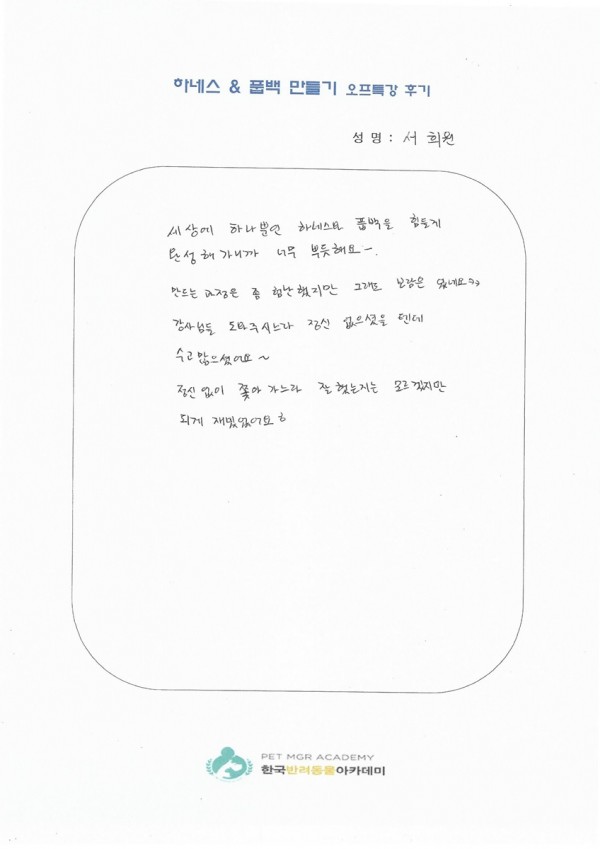 하네스 & 풉백 만들기 오프특강 후기
성 명 : 서 희원
세상에 하나뿐인 하네스와 풉백을 힘들게
완성해 가니까 너무 뿌듯해요~.
만드는 과정은 좀 험난했지만 그래도 보람은 있네요ㅋㅋ
강사님들 도와주시느라 정신 없으셨을 텐데
수고 많으셨어요~
정신없이 쫓아 가느라 잘 했는지는 모르겠지만
되게 재밌었어요
PET MGR ACADEMY
한국반려동물아카데미